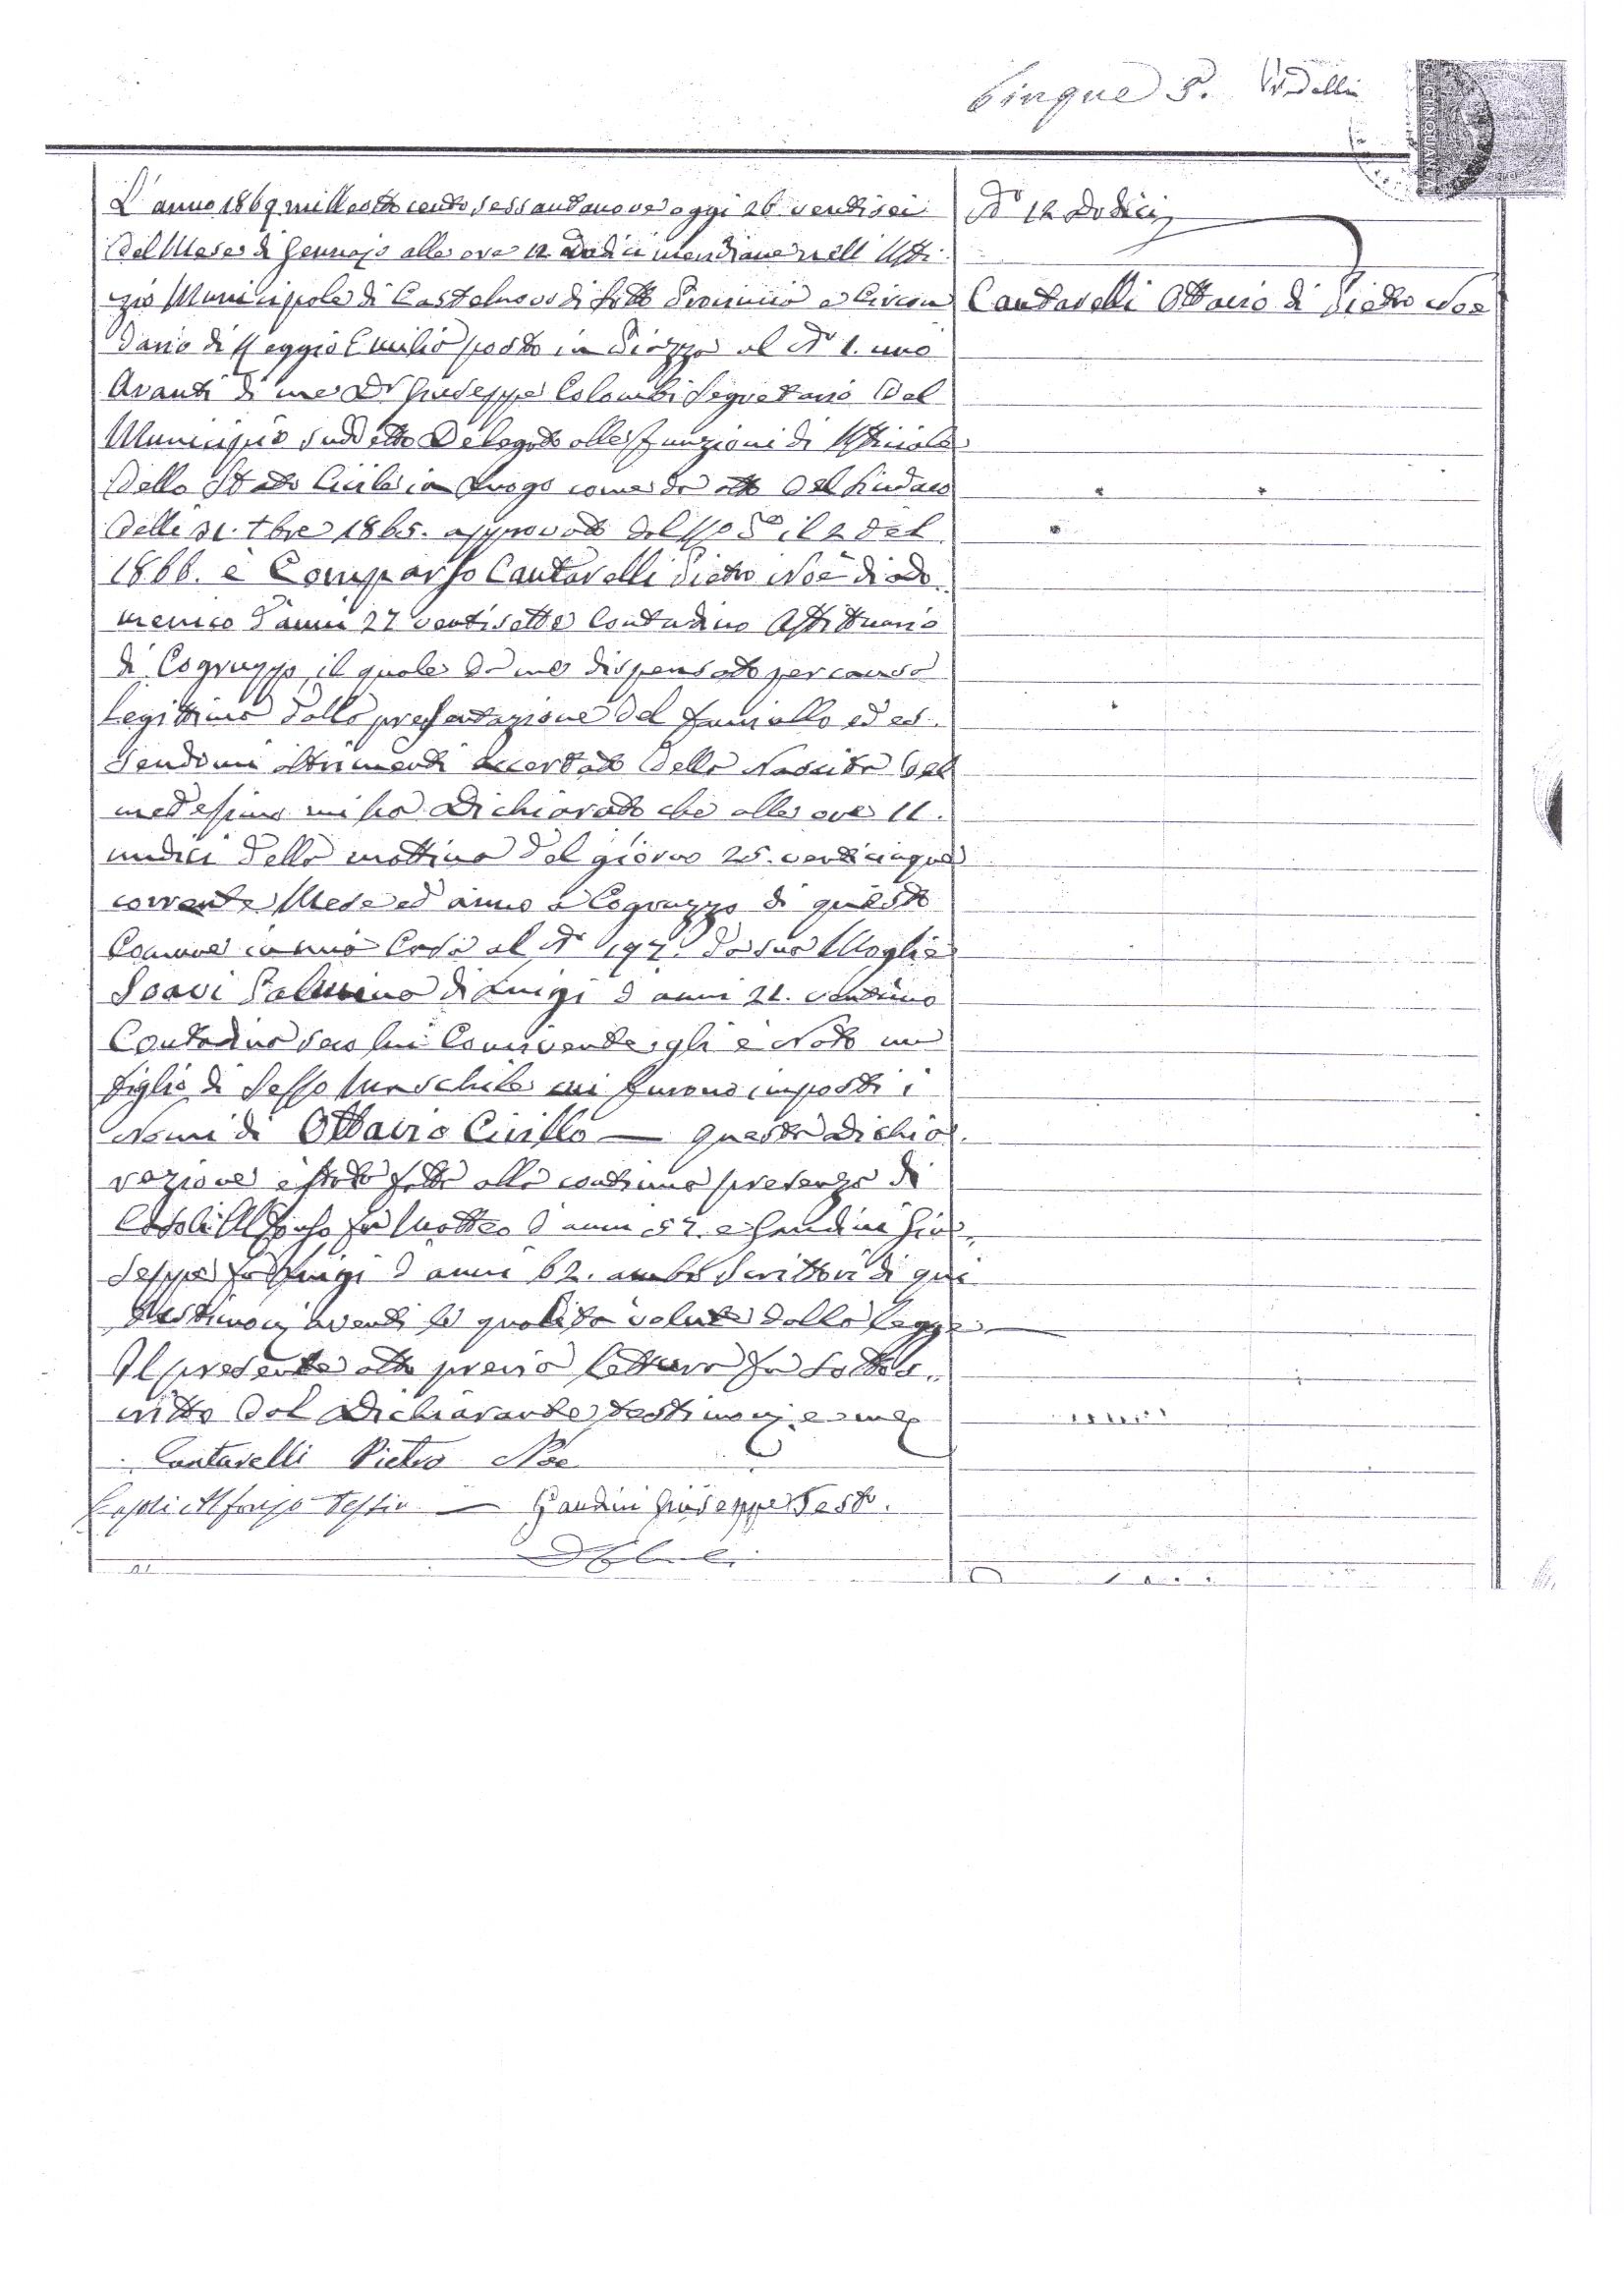 Cinque 5.
CINQUANT
L'anno 1869 milleottocentosessantanove oggi 26 ventisei
del Mese di Gennajo alle ore 12 dodici meridiane nell' Uffi-
zio Municipale di Castelnovo di sotto Provincia e Circon
dario di Reggio Emilia posto in Piazza al N° 1. uno
Avanti di me Dr Giuseppe Colombi Segretario del
Municipio suddetto Delegato alle funzioni di Ufficiale
dello Stato Civile in luogo come da atto del Sindaco
delli 31. Xbre 1865. approvato dal il 2 del
1866. è Comparso Cantarelli Pietro Noè di Do
menico d'anni 27 ventisette Contadino Affittuario
di Cogruzzo, il quale da me dispensato per causa
legittima dalla presentazione del fanciullo ed es-
sendomi altrimenti accertato della Nascita del
medesimo mi ha dichiarato che alle ore 11.
undici della mattina del giorno 25. venticinque
corrente Mese ed anno a Cogruzzo di questo
Comune in una Casa al N° 197. da sua Moglie
Soavi Palmina di Luigi d'anni 21. ventuno
Contadina seco lui Convivente, gli è Nato un
figlio di Sesso Maschile cui furono imposti i
Nomi di Ottavio Cirillo — questa dichia-
razione è stata fatta alla continua presenza di
Casoli Alfonso fu Matteo d'anni 57. e Gandini Giu-
seppe fu Luigi d'anni 62. ambi Scrittori di qui
testimonj aventi le qualità volute dalla legge —
Il presente atto previa lettura fu sottos-
critto dal Dichiarante, testimonj e me
Cantarelli Pietro Noe
Casoli Alfonso Testio — Gandini Giuseppe Testo.
N° 12 dodici
Cantarelli Ottavio di Pietro Noe